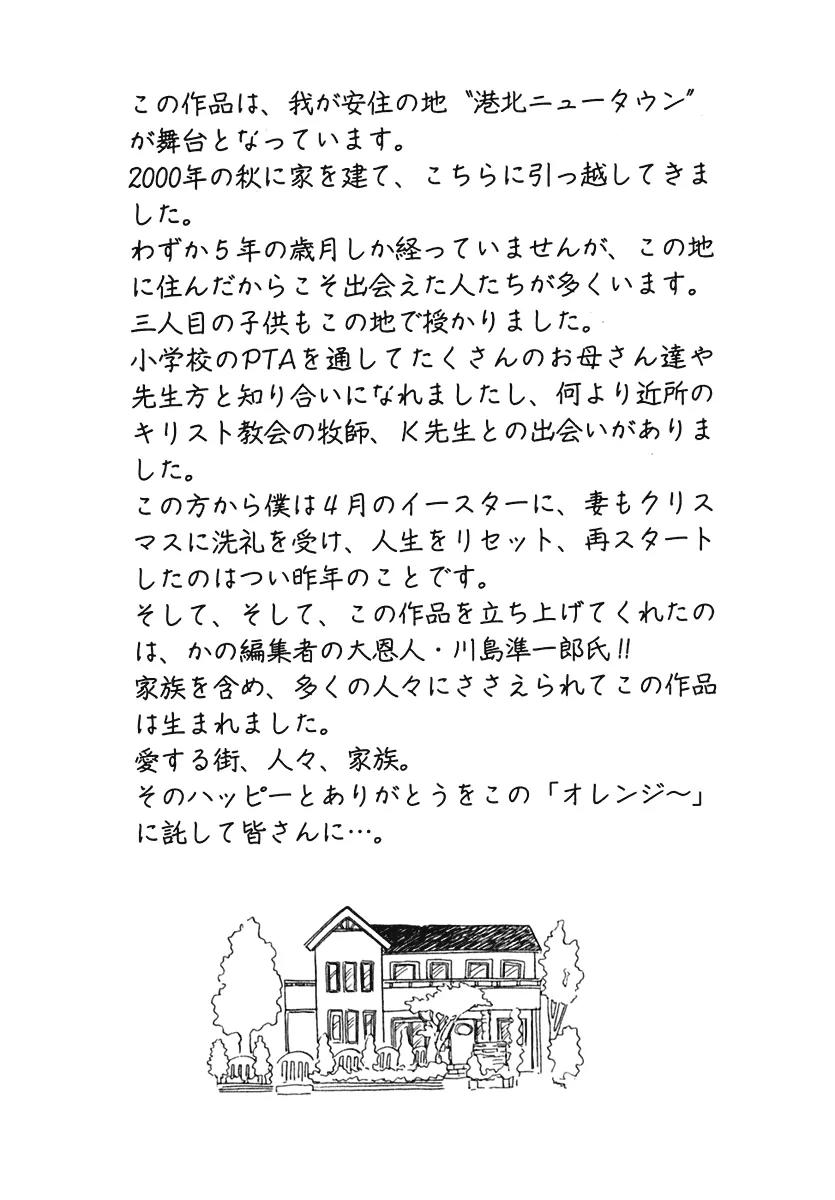 この作品は、我が安住の地〝港北ニュータウン〞
が舞台となっています。
2000年の秋に家を建て、こちらに引っ越してきま
した。
わずか5年の歳月しか経っていませんが、この地
に住んだからこそ出会えた人たちが多くいます。
三人目の子供もこの地で授かりました。
小学校のPTAを通してたくさんのお母さん達や
先生方と知り合いになれましたし、何より近所の
キリスト教会の牧師、K先生との出会いがありま
した。
この方から僕は4月のイースターに、妻もクリス
マスに洗礼を受け、人生をリセット、再スタート
したのはつい昨年のことです。
そして、そして、この作品を立ち上げてくれたの
は、かの編集者の大恩人・川島準一郎氏!!
家族を含め、多くの人々にささえられてこの作品
は生まれました。
愛する街、人々、家族。
そのハッピーとありがとうをこの「オレンジ〜」
に託して皆さんに…。